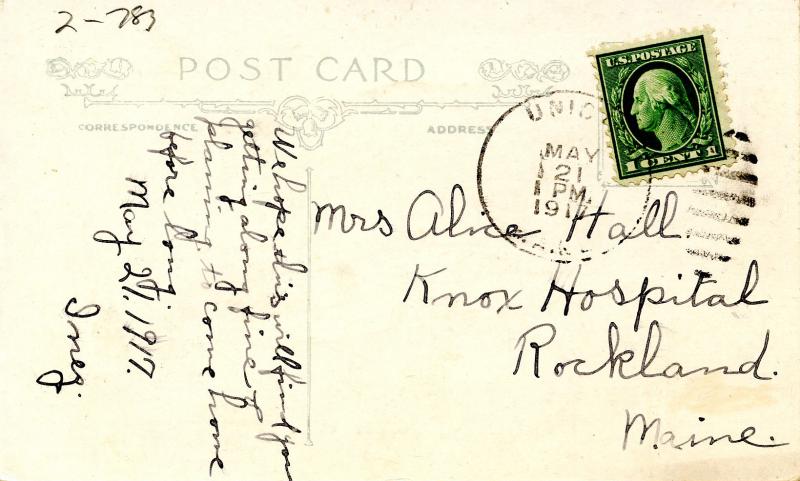 2-783
POST CARD
CORRESPONDENCE
ADDRESS
U.S. POSTAGE
1 CENT 1
UNIO
MAY
21
PM
191
Mrs Alice Hall.
Knox Hospital
Rockland.
Maine.
We hope this will find you
getting along fine &
planing to come home
before long.
May 21, 1917.
Inez.